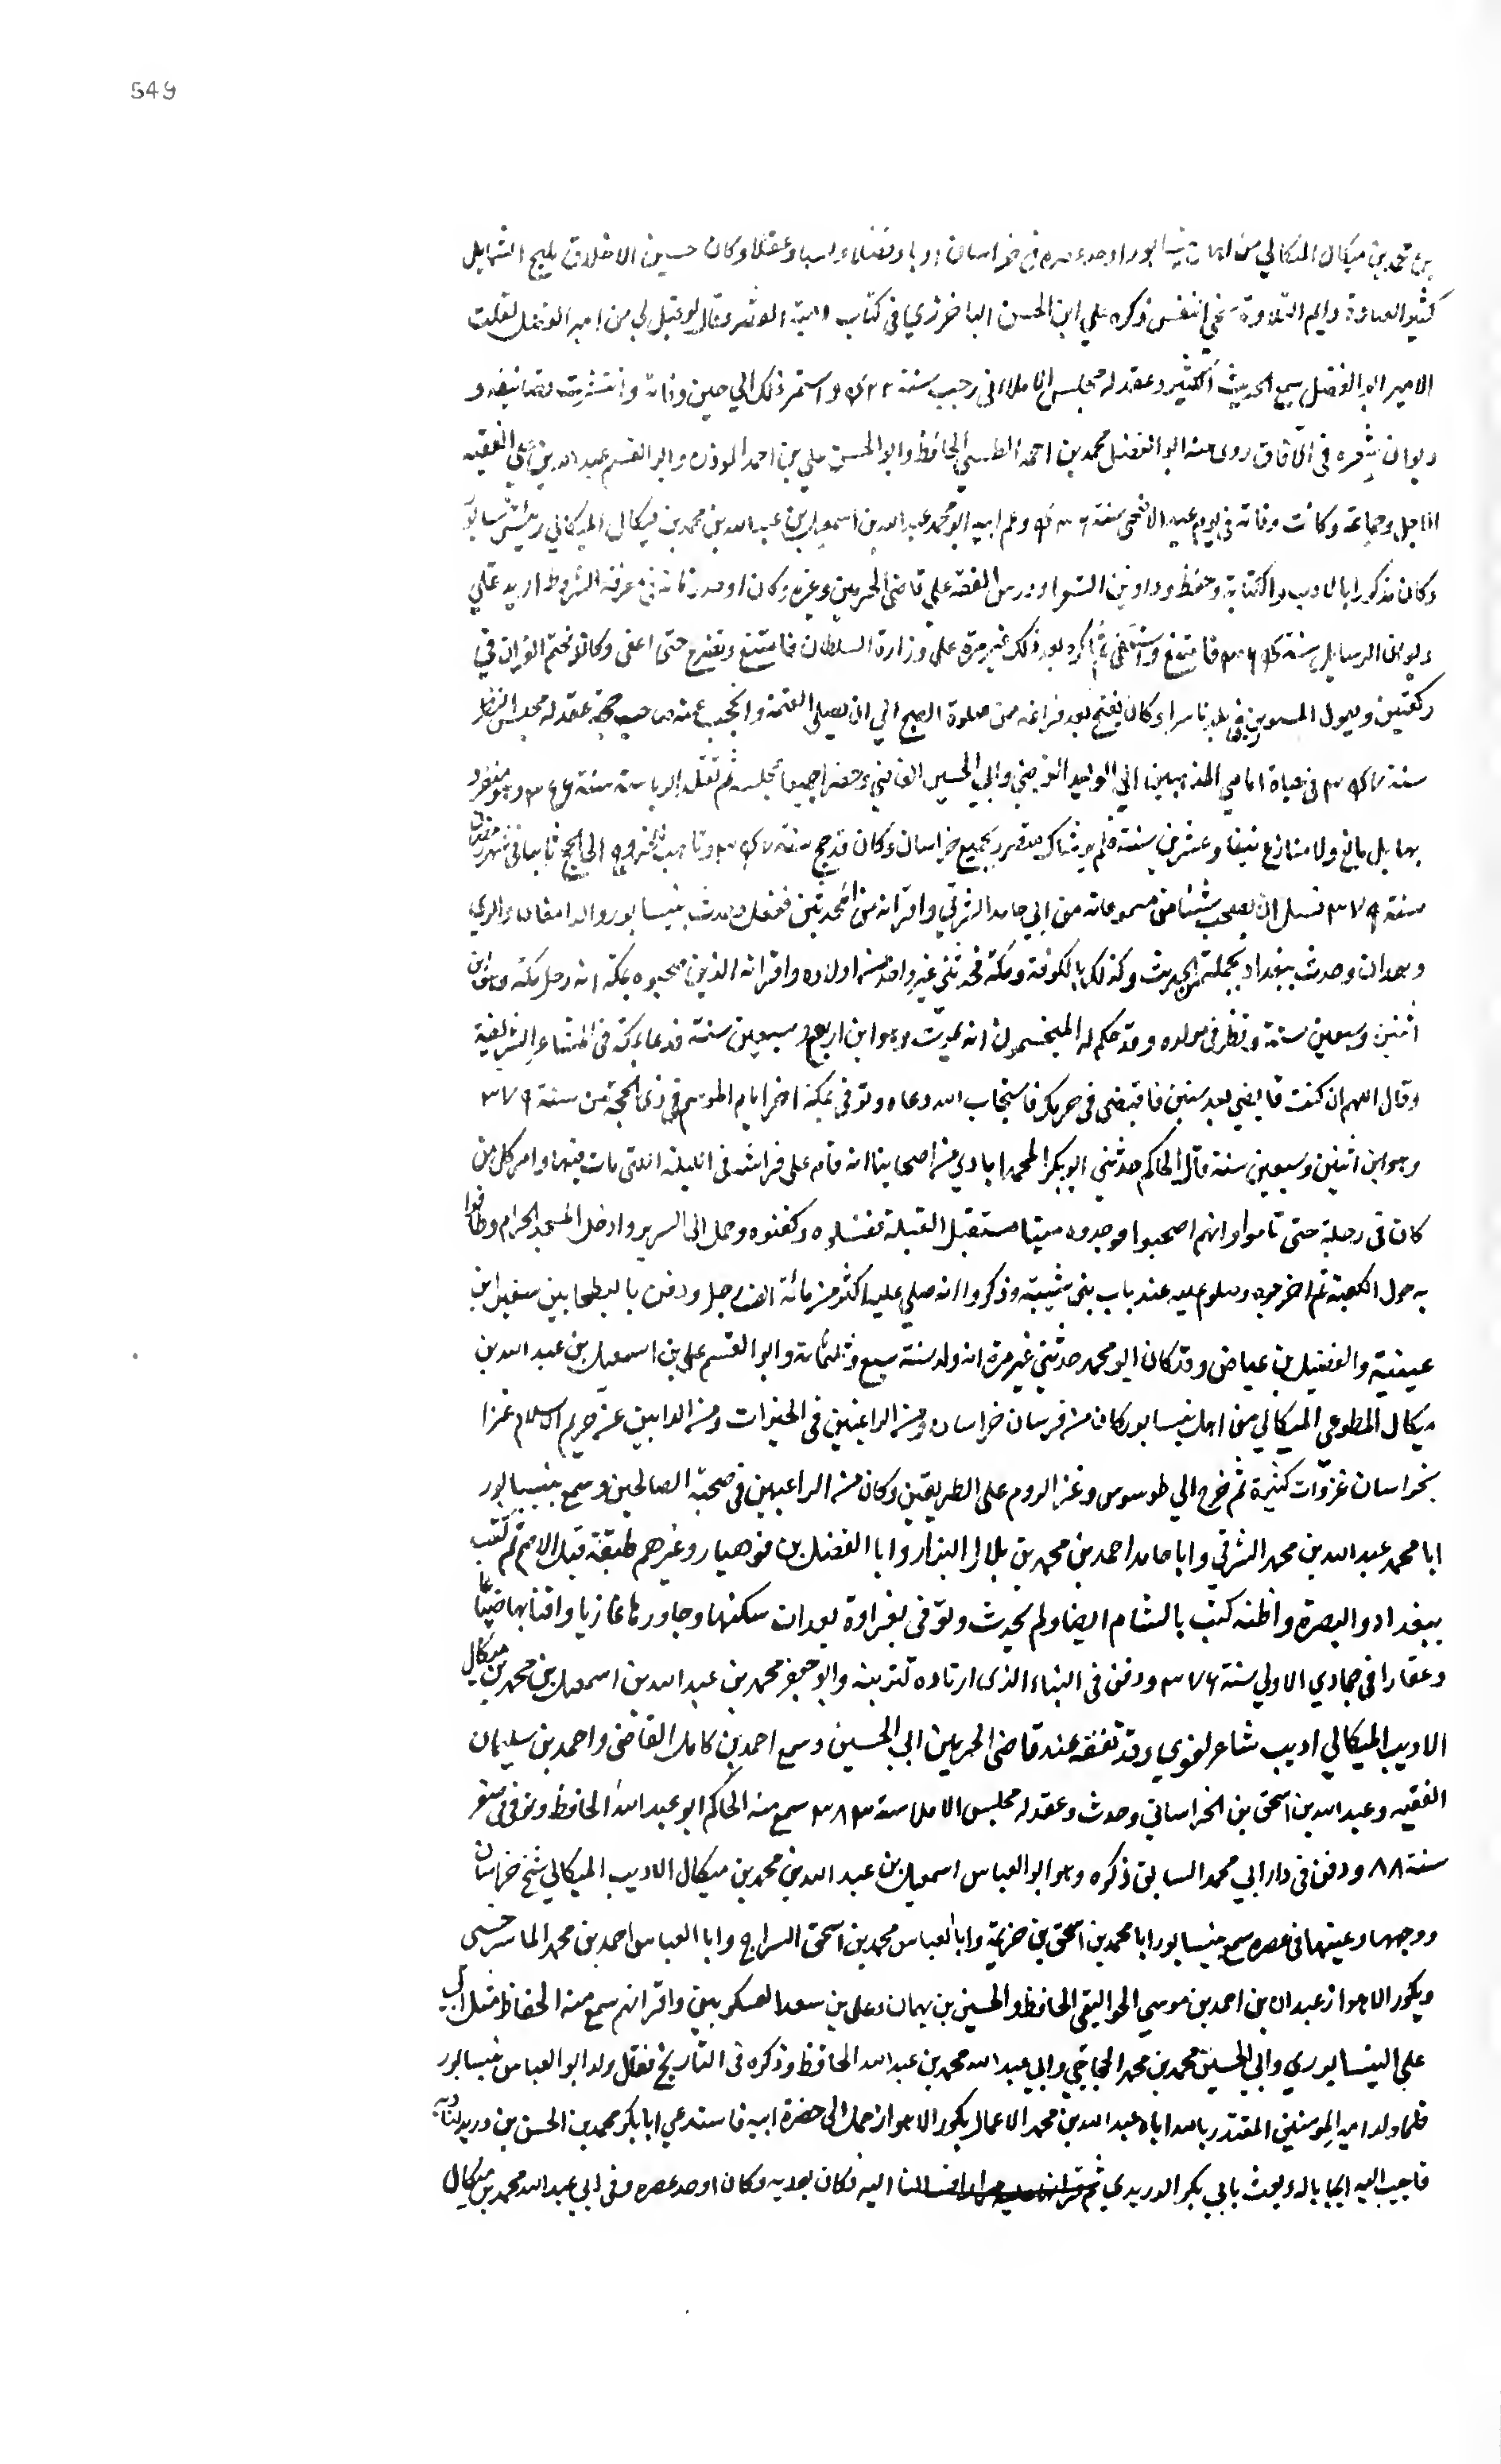 549
بن محمد بن ميكال الميكالي من اهل نيسابور اوحد عصره في خراسان ادبا وفضلا ونسبا وعقلا وكان حسن الاخلاق مليح الشمايل
كثير العبادة دايم التلاوة سخي النفس ذكره علي ابن الحسن الباخرزي في كتاب دمية القصر وقال لو قيل لي من امير الفضل لقلت
الامير ابو الفضل سمع الحديث الكثير وعقد له مجلس الاملاء في رجب سنة واستمر ذلك الي حين وفاته وانتشرت تصانيفه و
ديوان شعره في الآفاق روى عنه ابو الفضل محمد بن احمد الطبسي الحافظ وابو الحسن علي بن احمد المؤذن وابو القسم عبد الله بن علي الفقيه
الاجل وجماعة وكانت وفاته في يوم عيد الاضحى سنة وعم ابيه ابو محمد عبد الله بن اسمعيل بن عبد الله بن محمد بن ميكال الميكالي رئيس نيسابور
وكان مذكورا بالادب والكتابة وحفظ دواوين الشعرا ودرس الفقه علي قاضي الحرمين وغيره وكان اوحد زمانه في معرفة الشروط اريد علي
ديوان الرسايل سنة فامتنع واستعفى ثم اكره بعد ذلك غير مرة على وزارة السلطان فامتنع وتضرع حتى اعفى وكان يختم القران في
ركعتين ويعول المستورين في بلده سرا وكان يفتح بعد فراغه من صلوة الصبح الي ان يصلي العتمة ولا يحجب عنه صاحب حجة عقد له مجلس النظر
سنة في حياة امامي المذهبين ابي الوليد القرشي وابي الحسين القاضي وحضرا جميعا مجلسه ثم تقلد الرياسة سنة وهو منفرد
بها بلا مانع ولا منازع نيفا وعشرين سنة فلم يشاك مقصر بجميع خراسان وكان قد حج سنة وتاهب الي الحج ثانيا في شهر رمضان
سنة ٣٧٩ فسئل ان يصحب شيئا من مسموعاته من ابي حامد الشرقي واقرانه من المحدثين ففعل وحدث بنيسابور والدامغان والري
وهمدان وحدث ببغداد بجملة من الحديث وكذلك بالكوفة ومكة فحدثني غير واحد من اولاده واقرانه الذين صحبوه بمكة انه دخل مكة وهو ابن
اثنين وسبعين سنة ونظر في مولده وقد حكم له المنجمون انه يموت وهو ابن اربع وسبعين سنة فدعا بمكة في المشاعر الشريفة
وقال اللهم ان كنت قابضي بعد سنتين فاقبضني في حرمك فاستجاب الله دعاه وتوفي بمكة اخر ايام الموسم في ذي الحجة من سنة ٣٧٩
وهو ابن اثنين وسبعين سنة قال الحاكم حدثني ابو بكر المحمدابادي من اصحابنا انه قام على فراشه في الليلة التي مات فيها وامر كل من
كان في رحله حتى ناموا وانهم اصبحوا فوجدوه ميتا مستقبل القبلة فغسلوه وكفنوه وحمل الى السرير وادخل المسجد الحرام وطافوا
به حول الكعبة ثم اخرجوه وصلوا عليه عند باب بني شيبة وذكروا انه صلي عليه اكثر من مائة الف رجل ودفن بالبطحا بين سفيان بن
عيينة والفضيل بن عياض وقد كان ابو محمد حدثني غير مرة انه ولد سنة سبع وثلثمائة وابو القسم علي بن اسمعيل بن عبد الله بن
ميكال المطوعي الميكالي من اهل نيسابور كان من فرسان خراسان ومن الراغبين في الخيرات ومن الذابين عن حريم الاسلام غزا
بخراسان غزوات كثيرة ثم خرج الي طرسوس وغزا الروم على الطريقين وكان من الراغبين في صحبة الصالحين وسمع بنيسابور
ابا محمد عبد الله بن محمد الشرقي وابا حامد احمد بن محمد بن بلال البزاز وابا الفضل بن قوهيار وغيرهم طبقة قبل الاصم ثم كتب
ببغداد والبصرة واظنه كتب بالشام ايضا ولم يحدث وتوفي بفراوة بعد ان سكنها وجاور بها غازيا واقتنا بها ضياعا
وعقارا في جمادي الاولي سنة ٣٧٦ ودفن في البناء الذي ارتاده لتربته وابو جعفر محمد بن عبد الله بن اسمعيل بن محمد بن ميكال
الاديب الميكالي اديب شاعر لغوي وقد تفقه عند قاضي الحرمين ابي الحسين وسمع احمد بن كامل القاضي واحمد بن سليمان
الفقيه وعبد الله بن اسحق بن الخراساني وحدث وعقد له مجلس الاملا سنة ٣٨٣ سمع منه الحاكم ابو عبد الله الحافظ وتوفي في صفر
سنة ٨٨ ودفن في دار ابي محمد السابق ذكره وهو ابو العباس اسمعيل بن عبد الله بن محمد بن ميكال الاديب الميكالي شيخ خراسان
ووجهها وعينها في عصره سمع بنيسابور ابا محمد بن اسحق بن خزيمة وابا العباس محمد بن اسحق السراج وابا العباس احمد بن محمد الماسرجسي
وبكور الاهواز عبدان بن احمد بن موسي الجواليقي الحافظ والحسين بن بهمان وعلي بن سعد العسكريين واقرانهم سمع منه الحفاظ مثل ابي
علي النيسابوري وابي الحسين محمد بن محمد الحجاجي وابي عبد الله محمد بن عبد الله الحافظ وذكره في التاريخ فقال ولد ابو العباس بنيسابور
فلما ولد امير المومنين المقتدر بالله اباه عبد الله بن محمد الاعمال بكور الاهواز حمل الى حضرة ابيه فاستدعي ابا بكر محمد بن الحسن بن دريد لتاديبه
فاجيب اليه ايجابا له وبعث بابي بكر الدريدي ثم اليه فكان يوديه وكان اوحد عصره وفي ابي عبد الله محمد بن ميكال